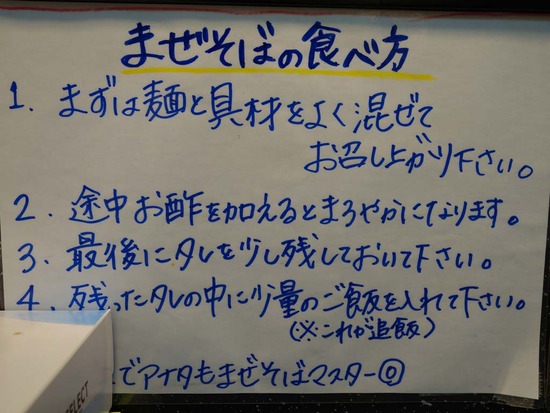 まぜそばの食べ方
1. まずは麺と具材をよく混ぜて
お召し上がり下さい。
2. 途中お酢を加えるとまろやかになります。
3. 最後にタレを少し残しておいて下さい。
4. 残ったタレの中に少量のご飯を入れて下さい。
(※これが追飯)
でアナタもまぜそばマスター
SELECT